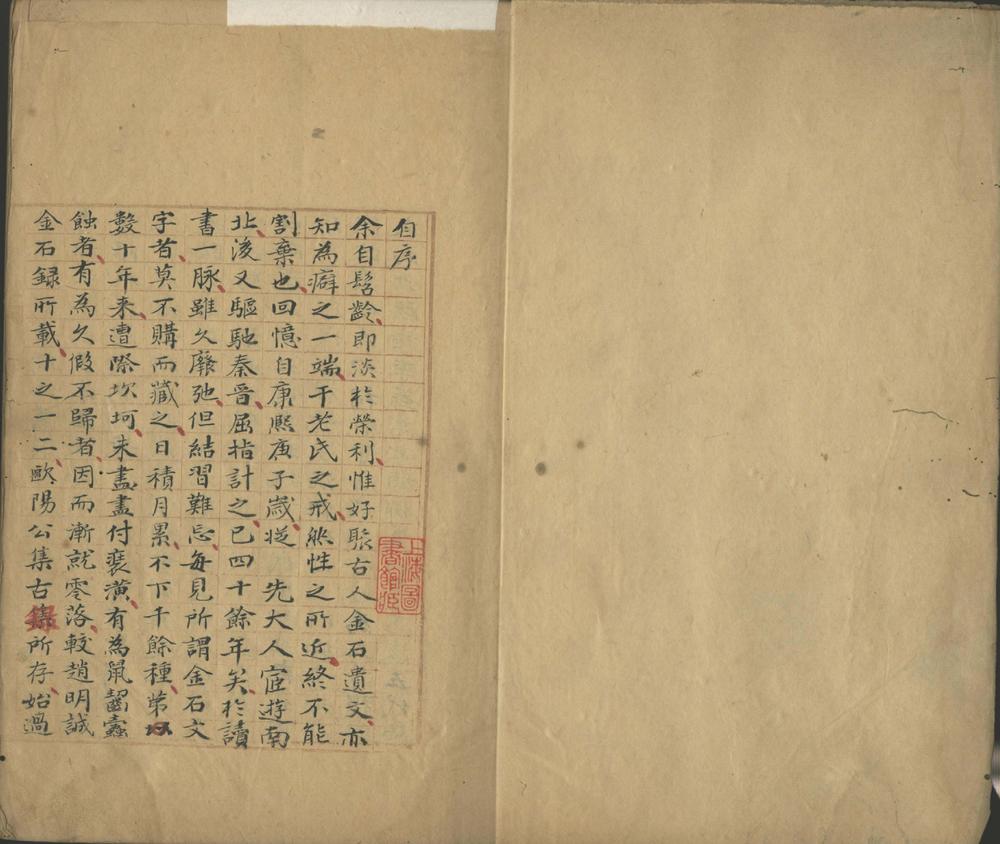 自序
余自髫齡即淡於榮利惟好聚古人金石遺文亦
知為癖之一端干老氏之戒然性之所近終不能
割棄也回憶自康熙庚子歲從 先大人宦遊南
北後又驅馳秦晉屈指計之已四十餘年矣於讀
書一脉雖久癈弛但結習難忘每見所謂金石文
字者莫不購而藏之日積月累不下千餘種第以
數十年来遭際坎坷未盡盡付裘潢有為鼠齧蠹
蝕者有為久假不歸者因而漸就零落較趙明誠
金石録所載十之一二歐陽公集古集所存始過
上海圖書館藏